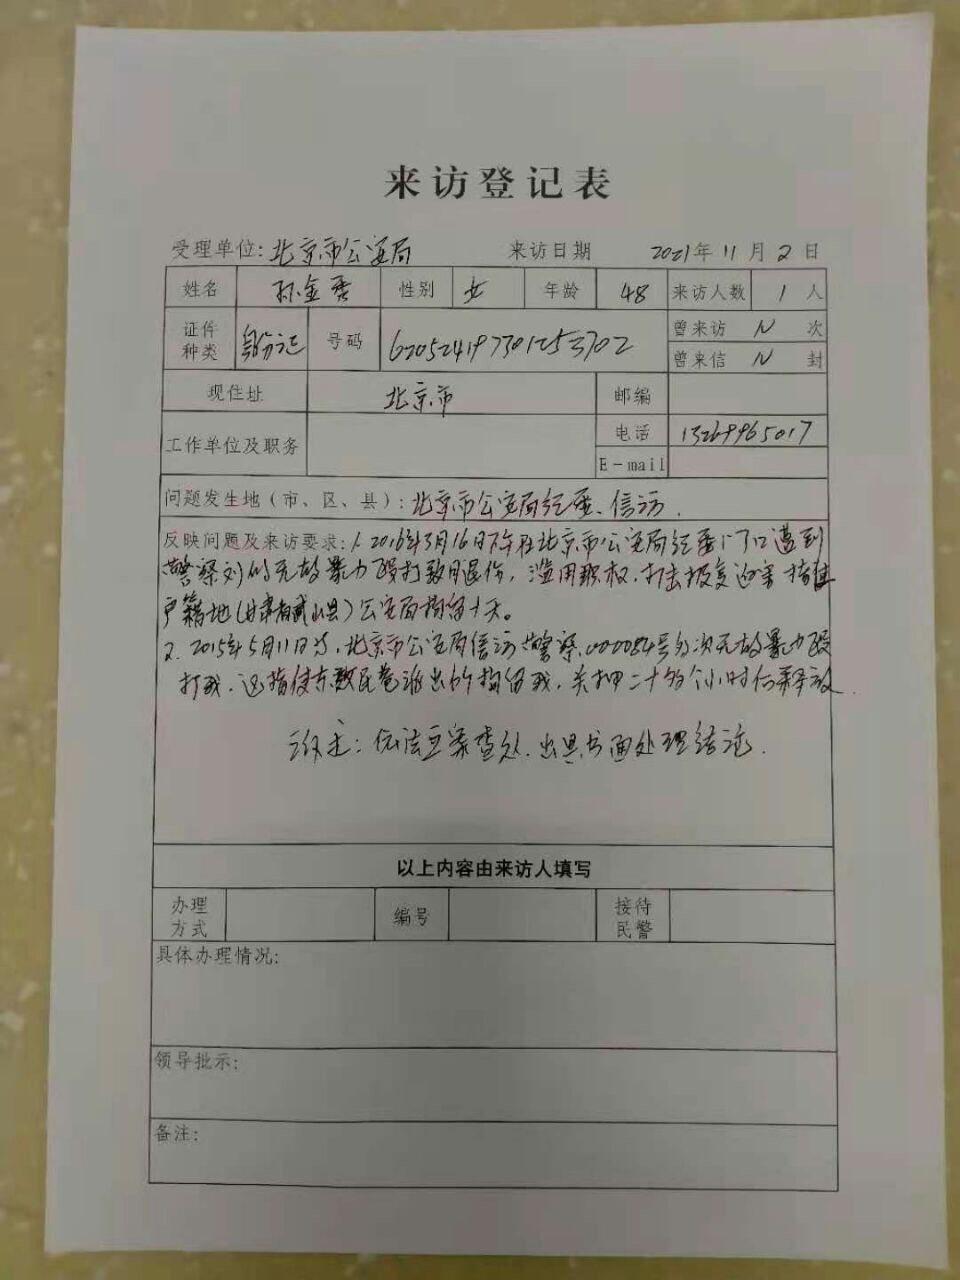 来访登记表
受理单位: 北京市公安局 来访日期 2021年11月2日
姓名 孙金香 性别 女 年龄 48 来访人数 1 人
证件种类 身份证 号码 曾来访 N 次
曾来信 N 封
现住址 北京市 邮编
工作单位及职务 电话 13269965017
E-mail
问题发生地（市、区、县）: 北京市公安局经委、信访.
反映问题及来访要求: 1. 2016年3月16日下午在北京市公安局经委门口遭到
警察刘 无故暴力殴打致 退伤, 滥用职权, 打击报复迫害 指使
户籍地(甘肃省武山县)公安局拘留十天。
2. 2015年5月11日 , 北京市公安局信访警察 000084号多次无故暴力殴
打我, 还指使东交民巷派出所拘留我, 关押二十多个小时 释放.
: 依法立案查处, 出具书面处理结论.
以上内容由来访人填写
办理方式 编号 接待民警
具体办理情况:
领导批示:
备注: